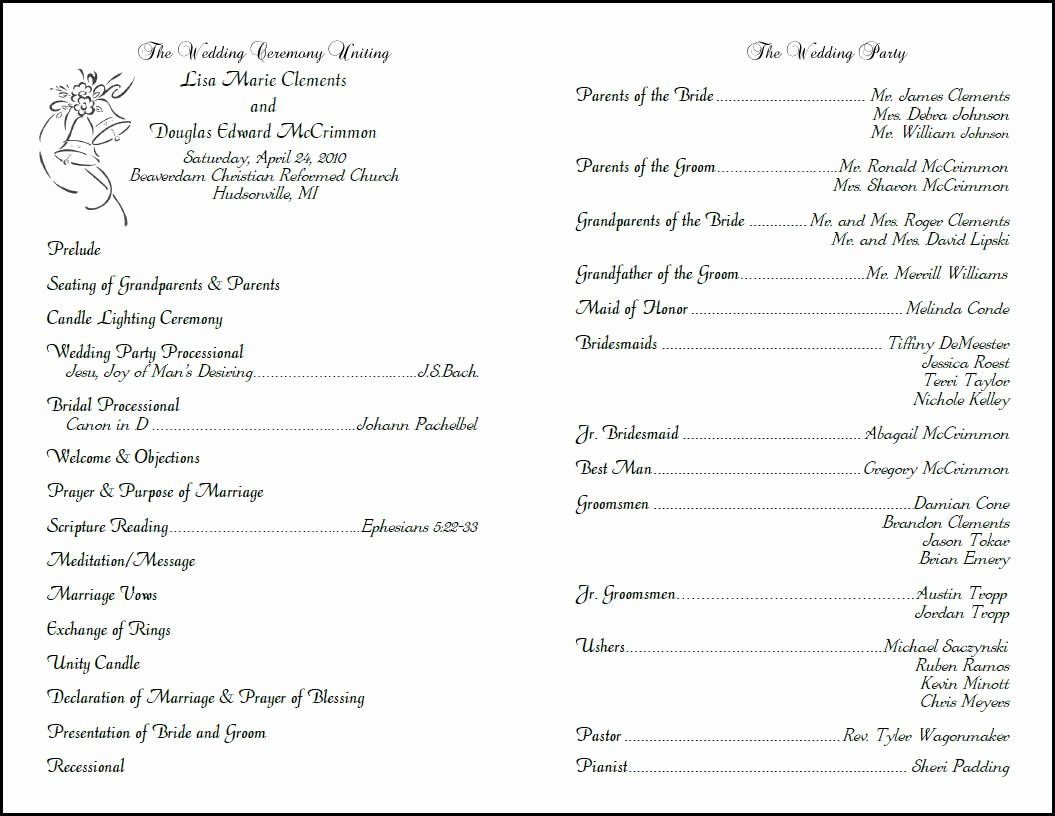 The Wedding Ceremony Uniting
Lisa Marie Clements
and
Douglas Edward McCrimmon
Saturday, April 24, 2010
Beaverdam Christian Reformed Church
Hudsonville, MI
Prelude
Seating of Grandparents & Parents
Candle Lighting Ceremony
Wedding Party Processional
Jesu, Joy of Man's Desiring..........................J.S.Bach.
Bridal Processional
Canon in D ..........................Johann Pachelbel
Welcome & Objections
Prayer & Purpose of Marriage
Scripture Reading..........................Ephesians 5:22-33
Meditation/Message
Marriage Vows
Exchange of Rings
Unity Candle
Declaration of Marriage & Prayer of Blessing
Presentation of Bride and Groom
Recessional
The Wedding Party
Parents of the Bride .......................... Mr. James Clements
Mrs. Debra Johnson
Mr. William Johnson
Parents of the Groom..........................Mr. Ronald McCrimmon
Mrs. Sharon McCrimmon
Grandparents of the Bride ............Mr. and Mrs. Roger Clements
Mr. and Mrs. David Lipski
Grandfather of the Groom..........................Mr. Merrill Williams
Maid of Honor .......................... Melinda Conde
Bridesmaids .......................... Tiffiny DeMeester
Jessica Roest
Terri Taylor
Nichole Kelley
Jr. Bridesmaid .......................... Abagail McCrimmon
Best Man.......................... Gregory McCrimmon
Groomsmen ..........................Damian Cone
Brandon Clements
Jason Tokar
Brian Emery
Jr. Groomsmen..........................Austin Tropp
Jordan Tropp
Ushers..........................Michael Saczynski
Ruben Ramos
Kevin Minott
Chris Meyers
Pastor ..........................Rev. Tyler Wagonmaker
Pianist.......................... Sheri Padding